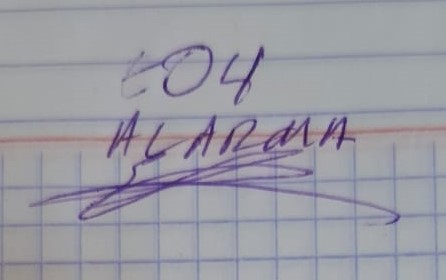 E04
ALARMA